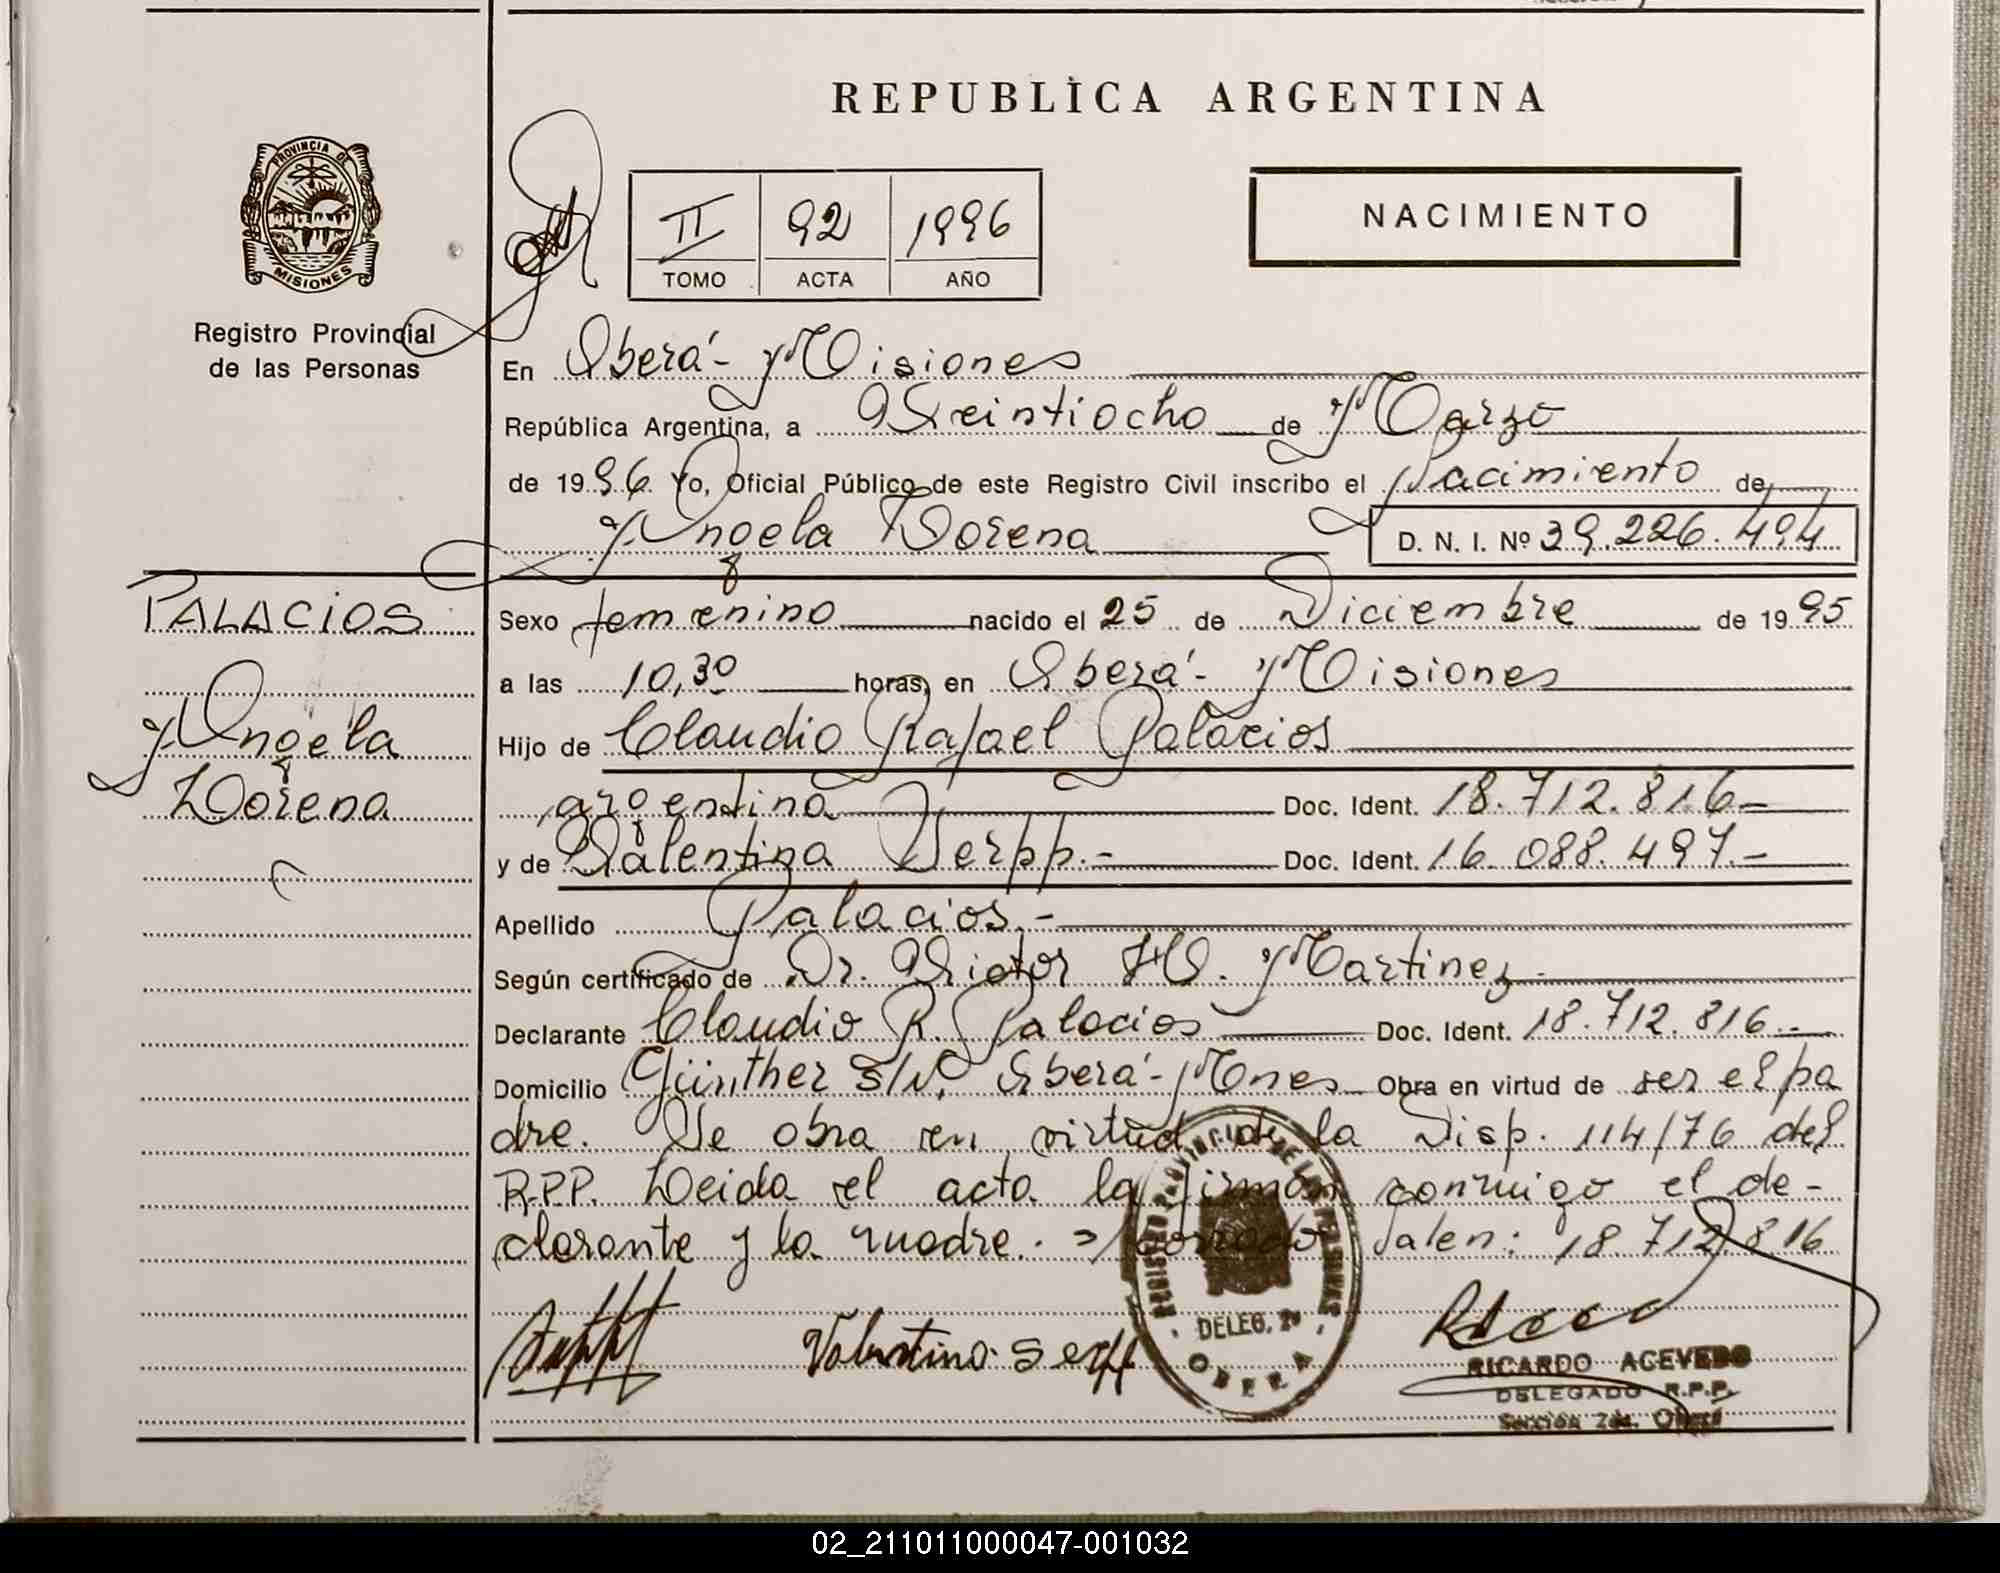 REPUBLICA ARGENTINA
PROVINCIA DE
MISIONES
Registro Provincial
de las Personas
II 92 1996
TOMO ACTA AÑO
NACIMIENTO
En Oberá - Misiones
República Argentina, a Veintiocho de Marzo
de 1996 Yo, Oficial Público de este Registro Civil inscribo el Nacimiento de
Angela Lorena D. N. I. Nº 39.226.494
PALACIOS
Angela
Lorena
Sexo femenino nacido el 25 de Diciembre de 1995
a las 10,30 horas, en Oberá - Misiones
Hijo de Claudio Rafael Palacios
argentina Doc. Ident. 18.712.816.-
y de Valentina Serpp.- Doc. Ident. 16.088.497.-
Apellido Palacios.-
Según certificado de Dr. Victor H. Martinez.
Declarante Claudio R. Palacios Doc. Ident. 18.712.816.-
Domicilio Günther S/Nº Oberá - Mnes Obra en virtud de ser el pa
dre. Se obra en virtud de la Disp. 114/76 del
R.P.P. Leida el acta la firman conmigo el de-
clarante y la madre. Valen: 18.712.816
Valentina Serpp
REGISTRO PROVINCIAL DE LAS PERSONAS
DELEG. 2ª
OBERA
RICARDO ACEVEDO
DELEGADO R.P.P.
Sección 2da. Oberá
02_211011000047-001032